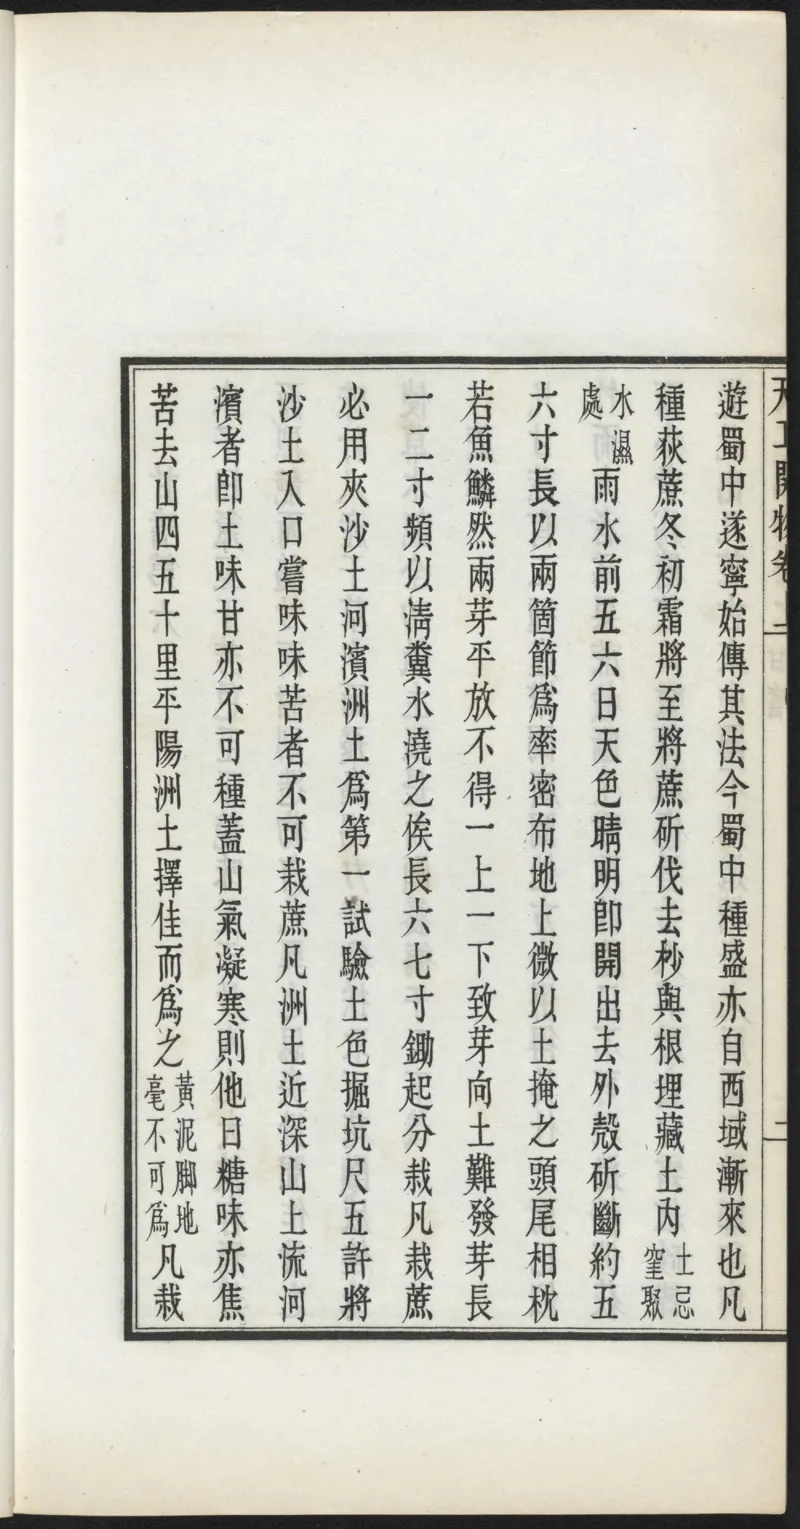 天工開物卷二　二
遊蜀中遂寧始傳其法今蜀中種盛亦自西域漸來也凡
種荻蔗冬初霜將至將蔗斫伐去杪與根埋藏土內土忌窪聚
水濕處雨水前五六日天色晴明卽開出去外殼斫斷約五
六寸長以兩箇節爲率密布地上微以土掩之頭尾相枕
若魚鱗然兩芽平放不得一上一下致芽向土難發芽長
一二寸頻以清糞水澆之俟長六七寸鋤起分栽凡栽蔗
必用夾沙土河濱洲土爲第一試驗土色掘坑尺五許將
沙土入口嘗味味苦者不可栽蔗凡洲土近深山上流河
濱者卽土味甘亦不可種蓋山氣凝寒則他日糖味亦焦
苦去山四五十里平陽洲土擇佳而爲之黃泥脚地毫不可爲凡栽